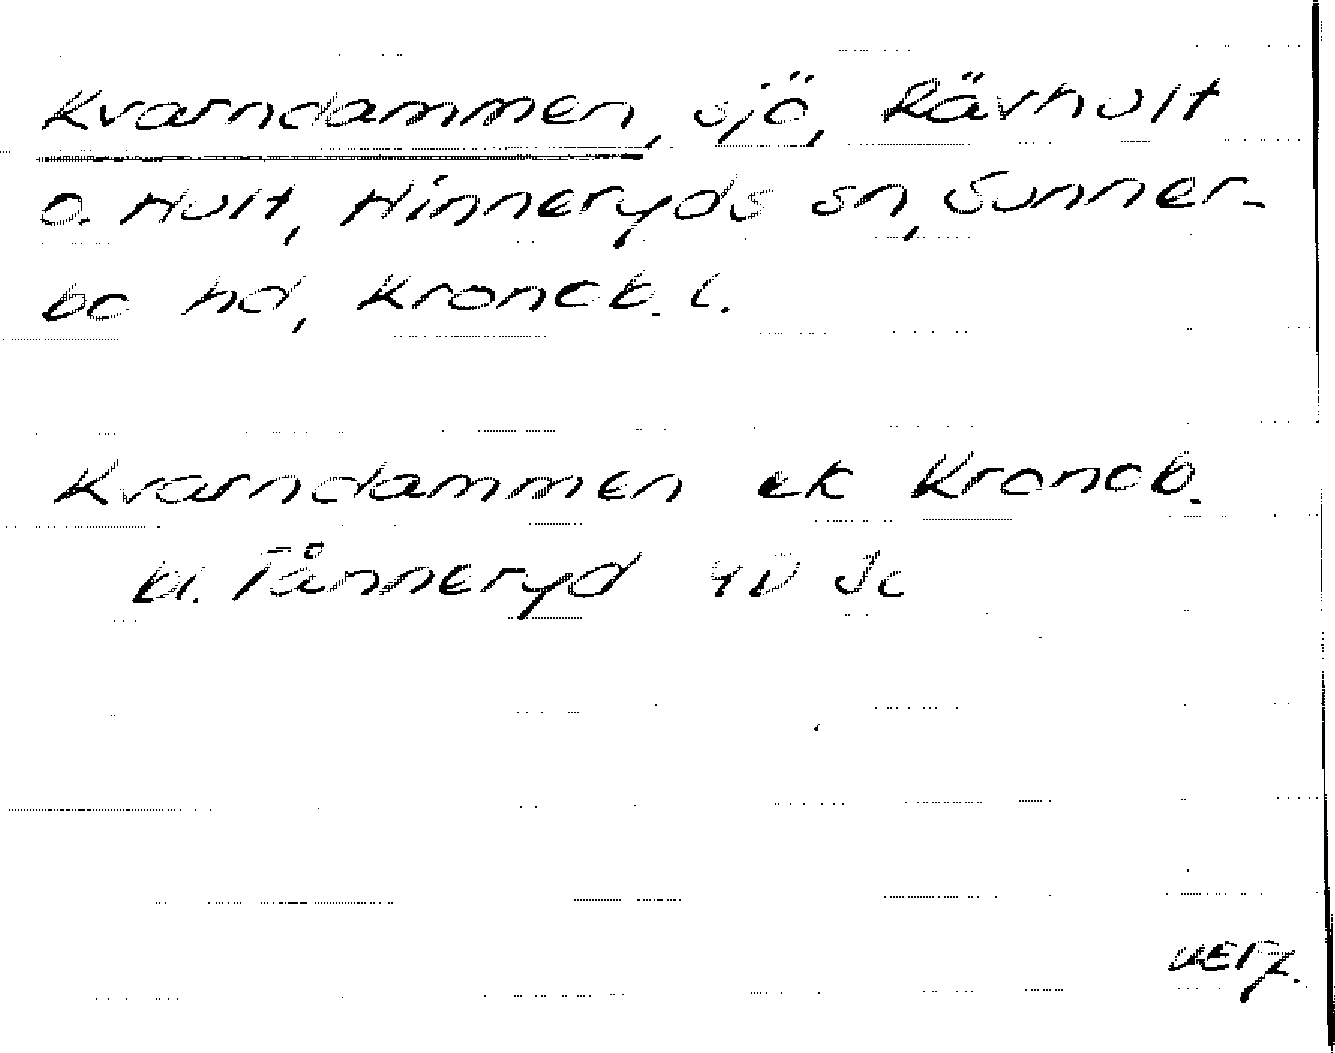 Kvarndammen, sjö, Rävhult
o. Hult, Hinneryds sn, Sunner-
bo hd, Kronob. l.
Kvarndammen ek Kronob.
bl. Tånneryd 4D